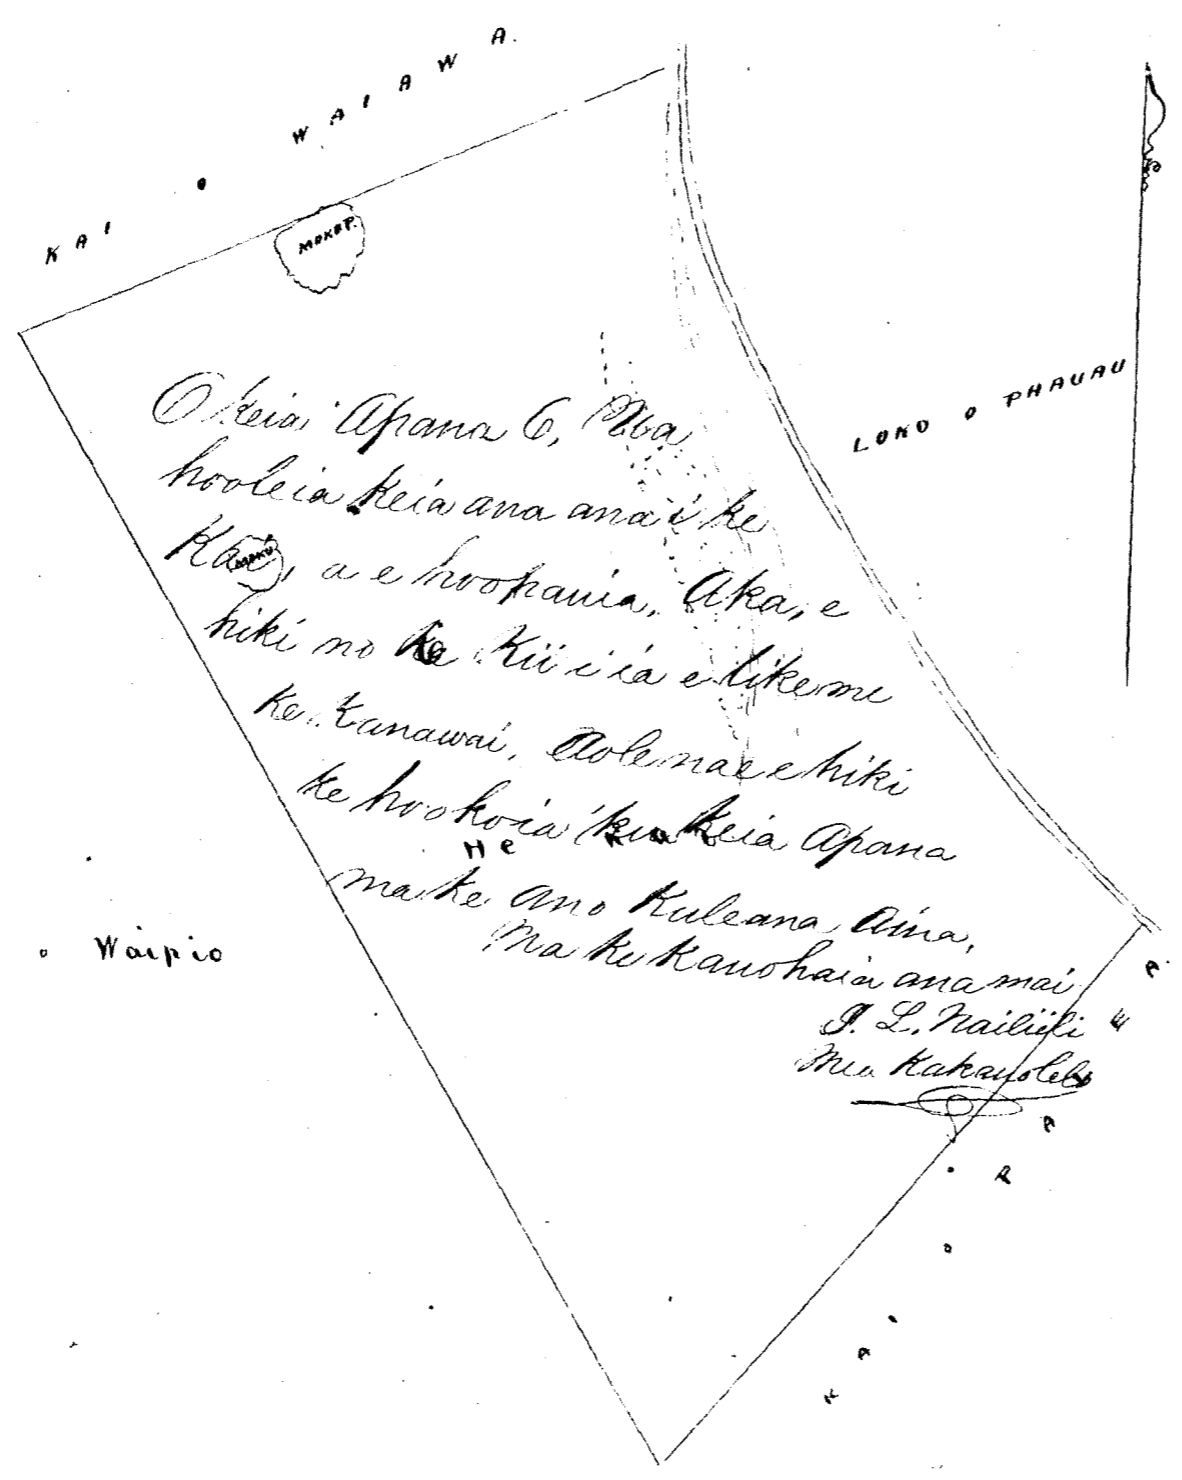 KAI o WAIAWA.
MOKUP.
LOKO o PHAUAU
O keia Apana 6, Ua
hooleia keia ana ana i ke
Kai, a e hoopauia, Aka, e
MOKU
hiki no ke Kii i ia e like me
ke Kanawai, Aole nae e hiki
ke hookoia keia Apana
He
ma ke ano Kuleana Aina,
Ma ke Kauohaia ana mai
o Waipio
J. L. Nailiili
Mea Kakauolelo
KAI o